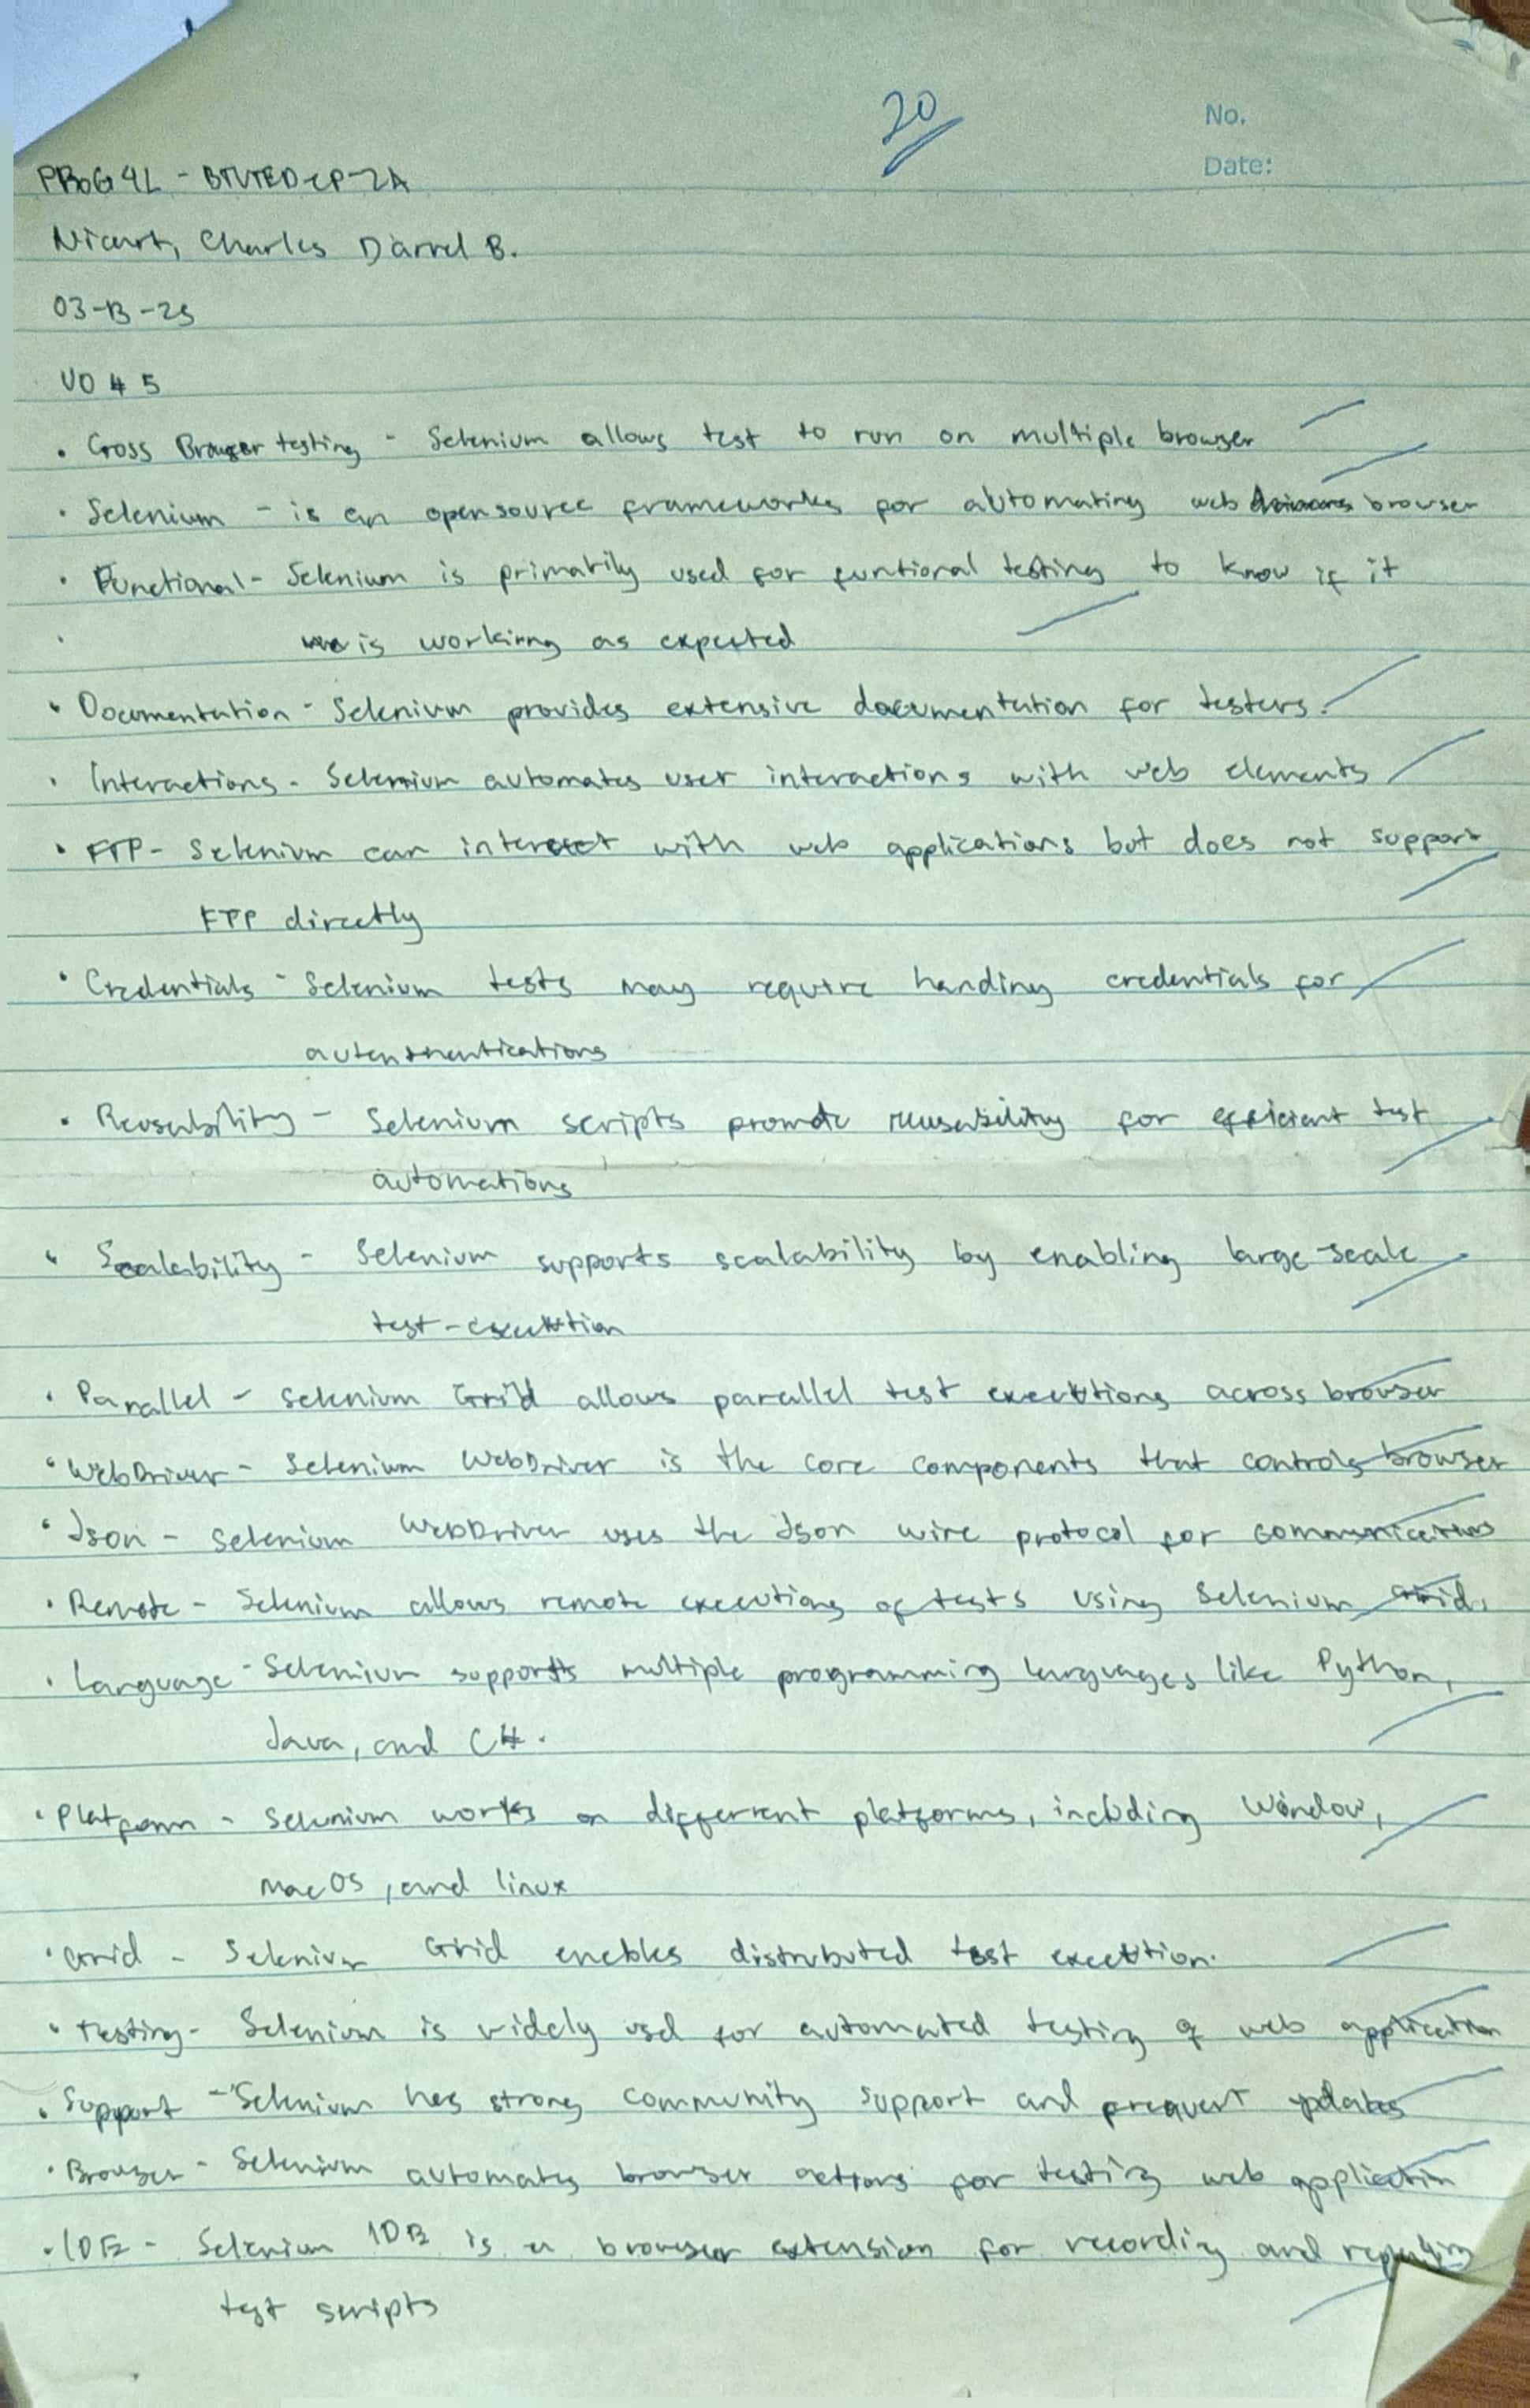 20
No.
Date:
PROG4L - BTVTED-CP-2A
Nicart, Charles Darrel B.
03-13-25
VO # 5
• Cross Browser testing - Selenium allows test to run on multiple browser
• Selenium - is an opensource frameworks for automating web browser
• Functional - Selenium is primarily used for funtional testing to know if it
is working as expected
• Documentation - Selenium provides extensive documentation for testers.
• Interactions - Selenium automates user interactions with web elements
• FTP - Selenium can interact with web applications but does not support
FTP directly
• Credentials - Selenium tests may require handing credentials for
• Reusability - Selenium scripts promote reusability for efficient test
automations
• Scalability - Selenium supports scalability by enabling large-scale
test-execution
• Parallel - Selenium Grid allows parallel test executions across browser
• WebDriver - Selenium WebDriver is the core components that controls browser
• Json - Selenium WebDriver uses the Json wire protocol for communications
• Remote - Selenium allows remote executions of tests using Selenium Grid.
• Language - Selenium supports multiple programming languages like Python,
Java, and C#.
• Platform - Selenium works on different platforms, including Window,
macOS, and linux
• Grid - Selenium Grid enables distrubuted test execution.
• Testing - Selenium is widely used for automated testing of web application
• Support - Selenium has strong community support and frequent updates
• Browser - Selenium automates browser actions for testing web application
• IDE - Selenium IDE is a browser extension for recording and
test scripts